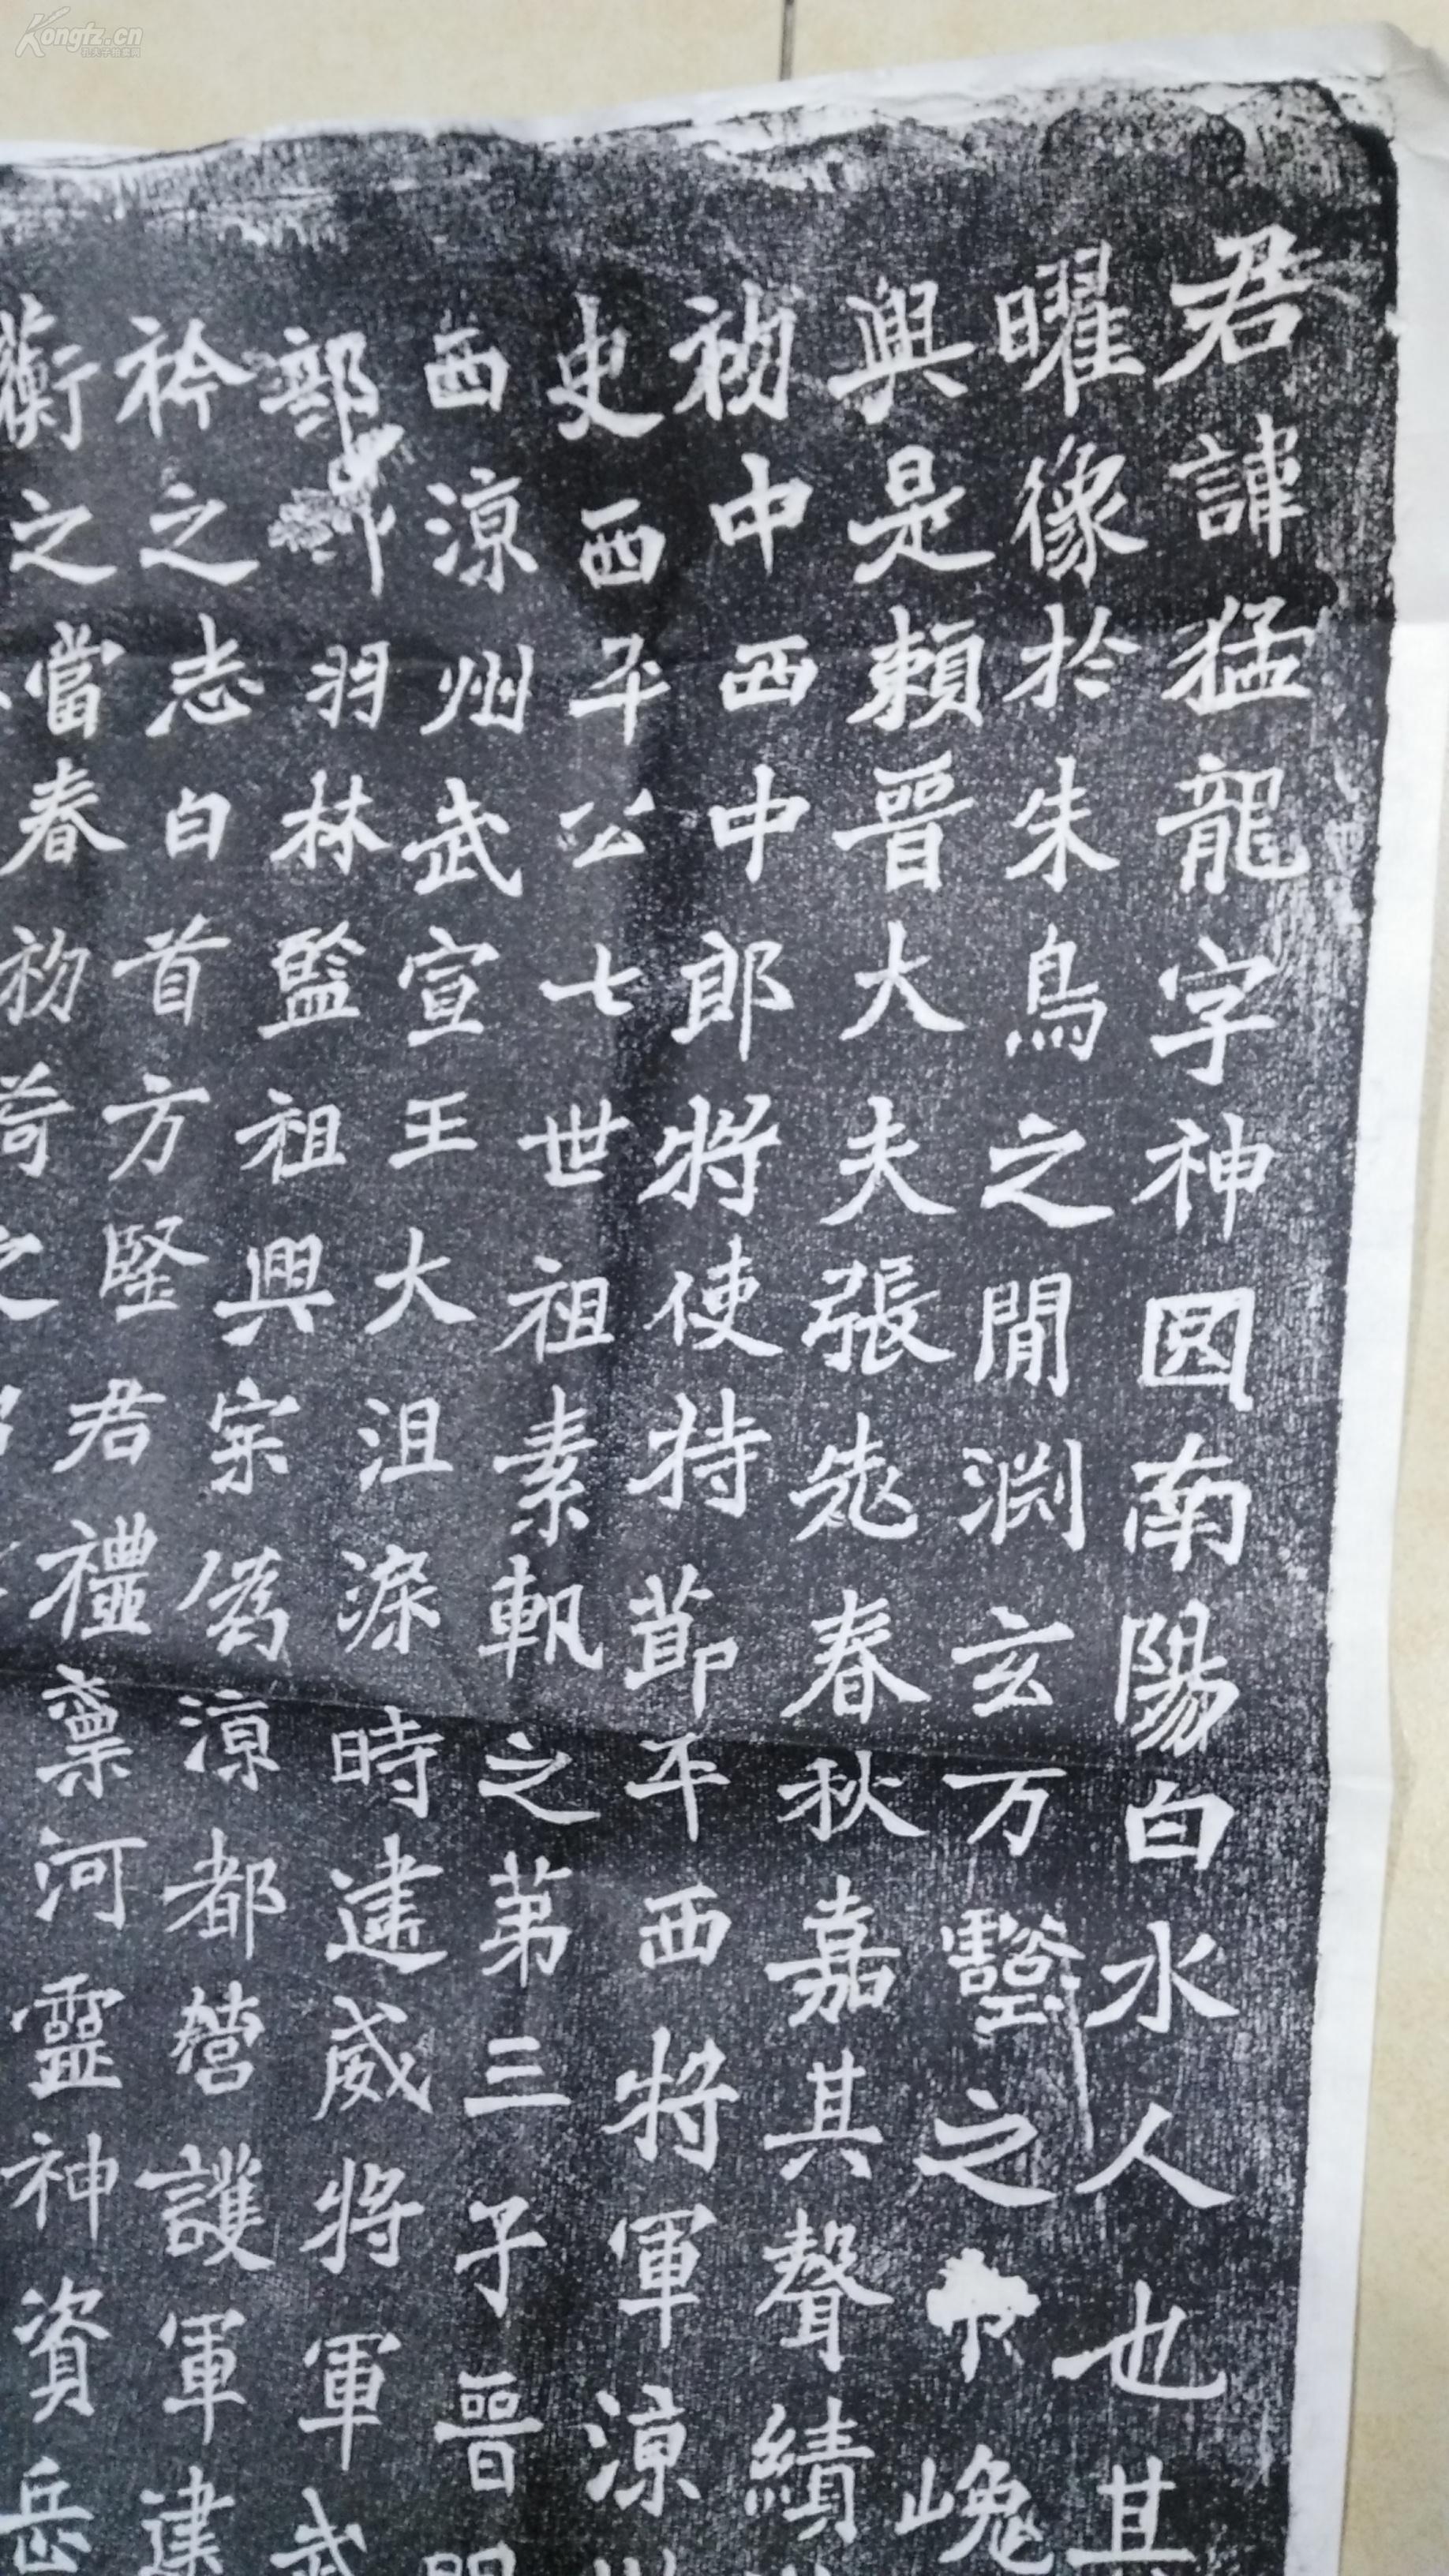 君諱猛龍字神囧南陽白水人也其
曜像於朱鳥之閒渊玄万壑之中巉
興是賴晉大夫張老春秋嘉其聲績
初中西中郎將使持節平西將軍涼
史西平公七世祖素軌之第三子晉
西涼州武宣王大沮渠時建威將軍武
部羽林監祖興宗偽涼都營護軍建
衿之志白首方堅君禮稟河靈神資岳
蘅之當春初荷之
Kongfz.cn